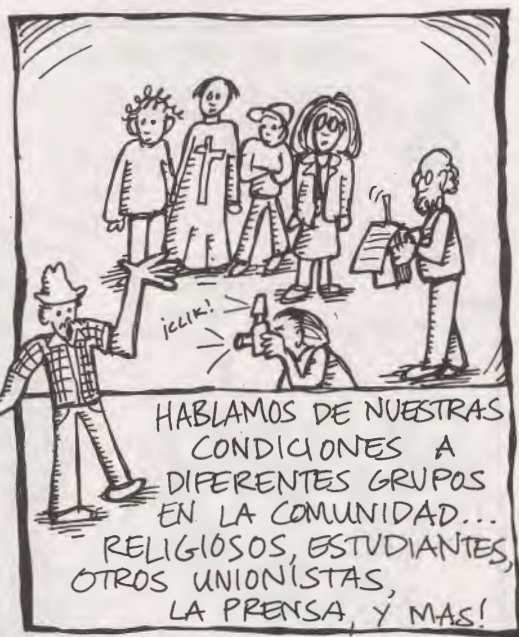 ¡CLIK!
HABLAMOS DE NUESTRAS
CONDICIONES A
DIFERENTES GRUPOS
EN LA COMUNIDAD...
RELIGIOSOS, ESTUDIANTES,
OTROS UNIONISTAS,
LA PRENSA, Y MAS!